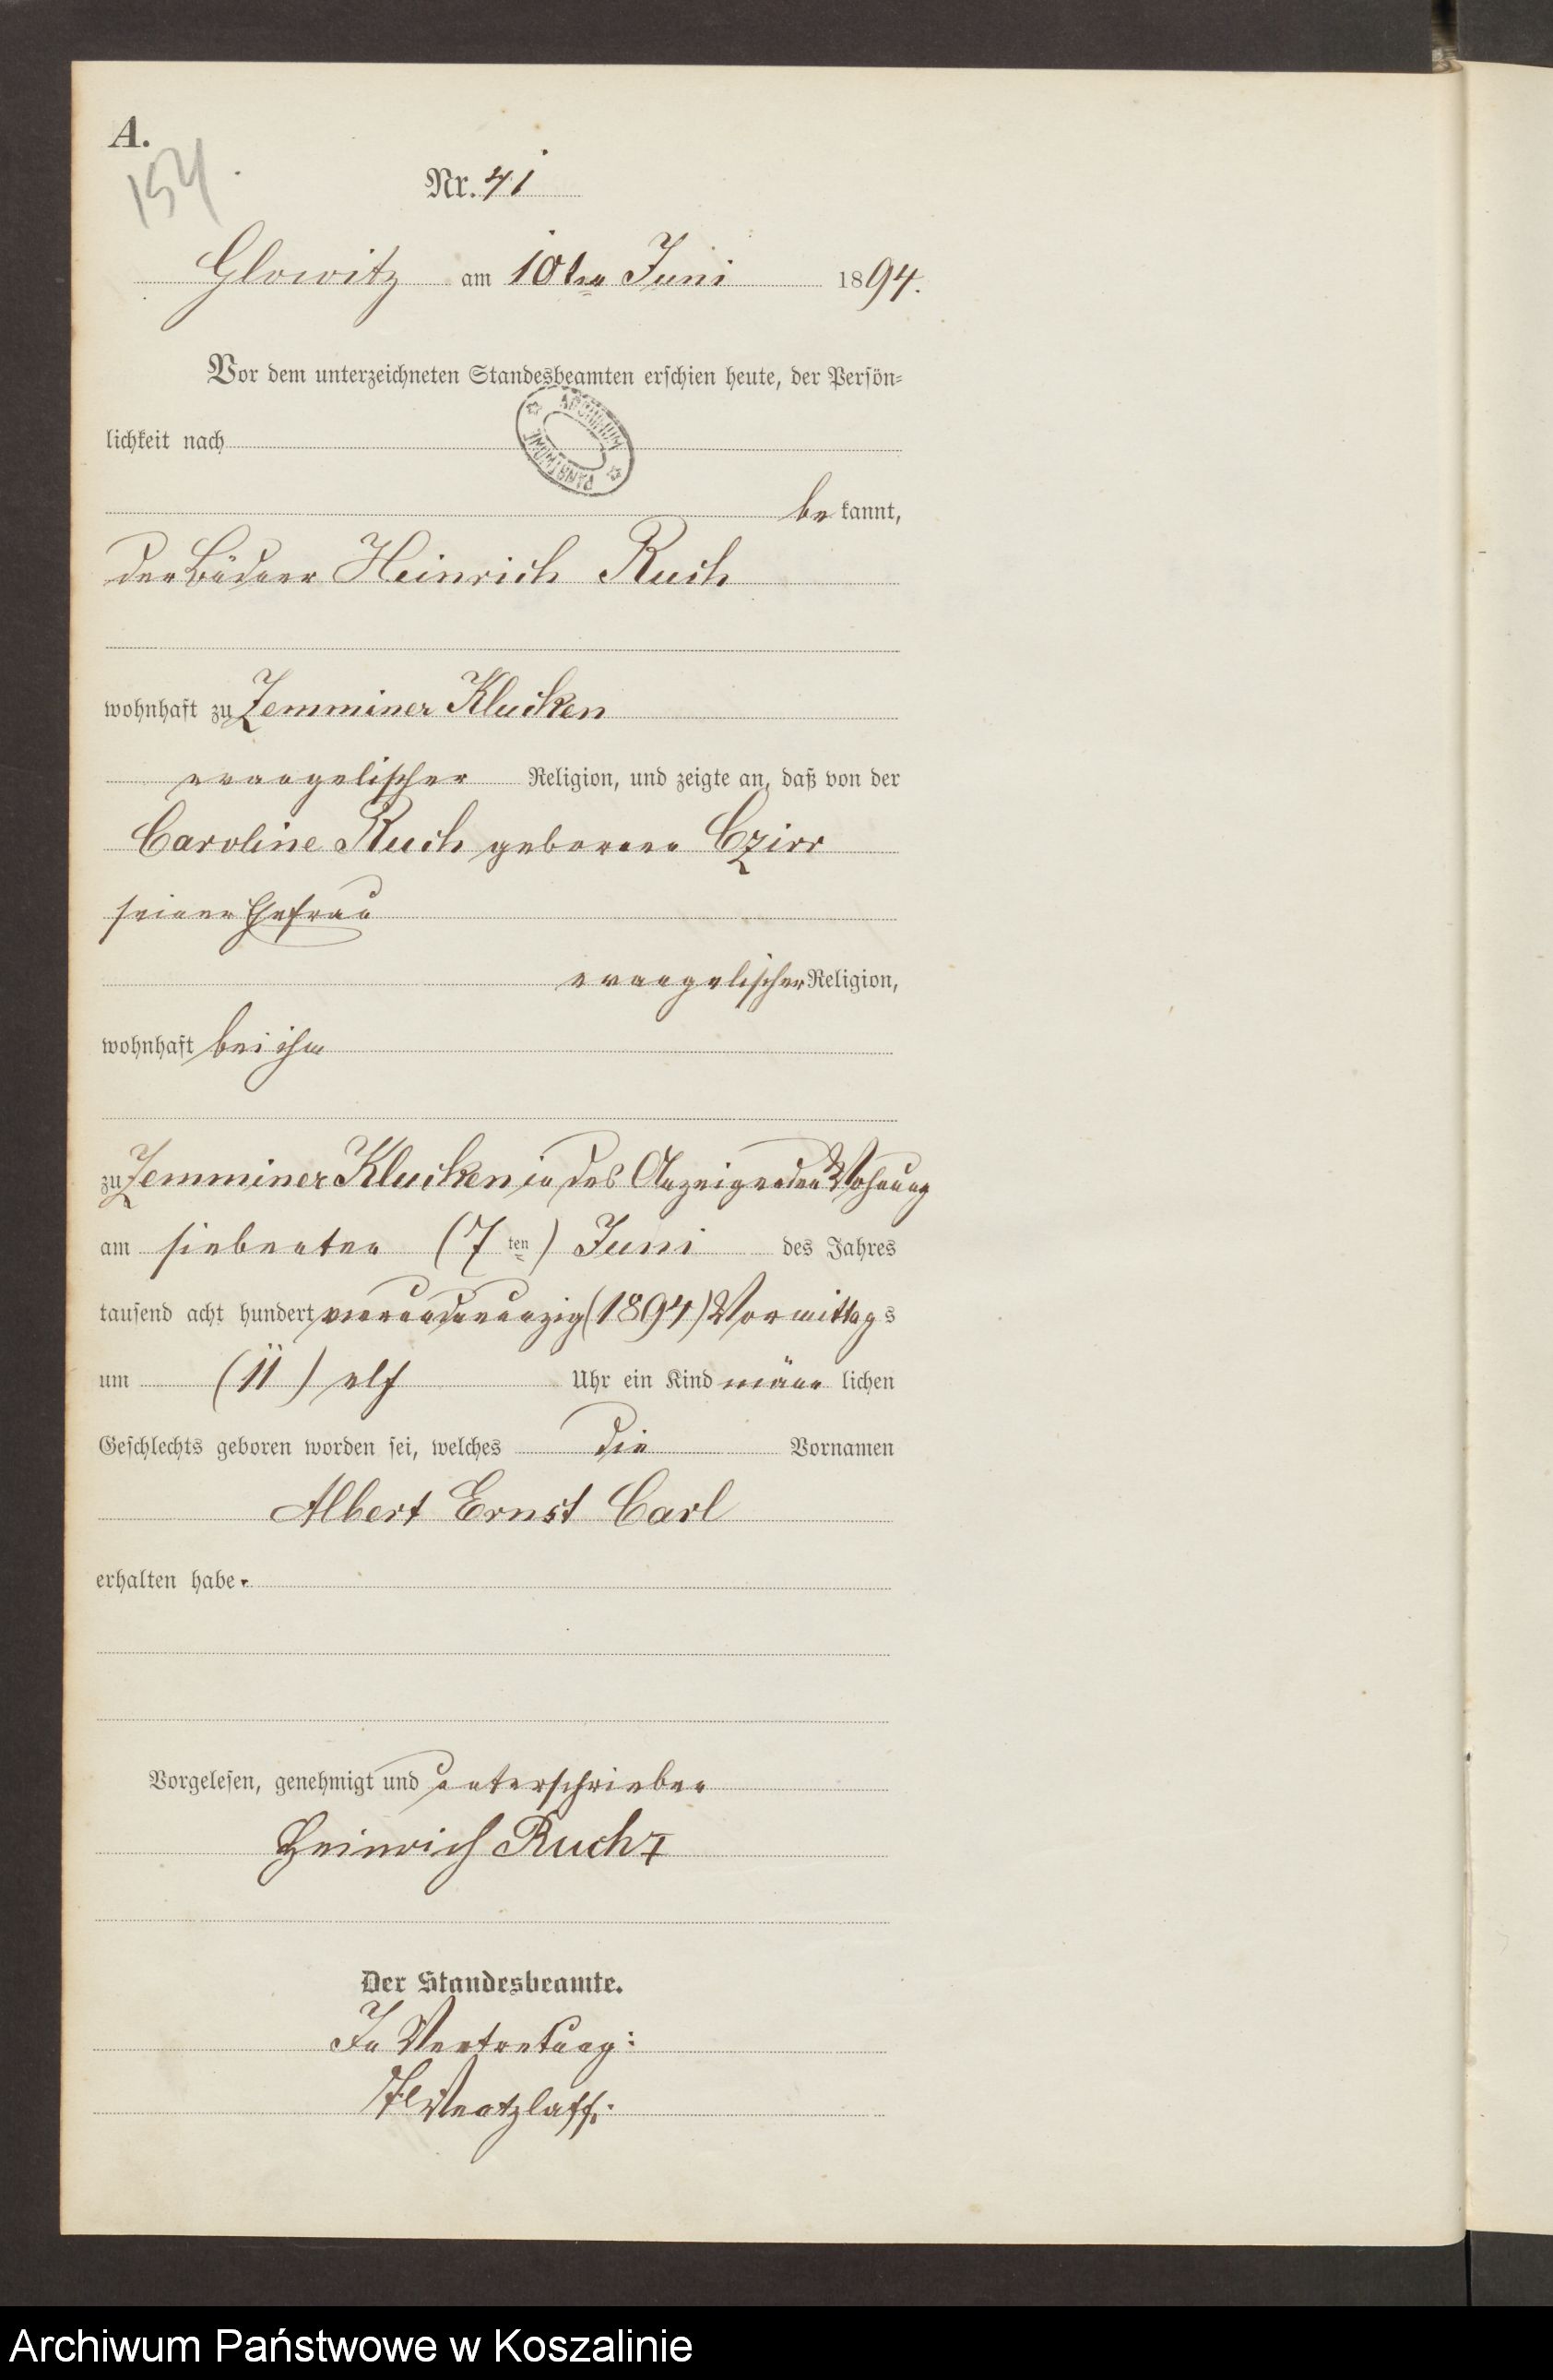 A.
154.
Nr. 41
Glowitz am 10ten Juni 1894.
Vor dem unterzeichneten Standesbeamten erschien heute, der Persön-
lichkeit nach
ARCHIWUM PAŃSTWOWE
be kannt,
der Büdner Heinrich Ruch
wohnhaft zu Zemminer Klucken
evangelischer Religion, und zeigte an, daß von der
Caroline Ruch geborene Czirr
seiner Ehefrau
evangelischer Religion,
wohnhaft bei ihm
zu Zemminer Klucken in des Anzeigenden Wohnung
am siebenten (7ten) Juni des Jahres
tausend acht hundert vierundneunzig (1894) Vormittags
um (11) elf Uhr ein Kind männ lichen
Geschlechts geboren worden sei, welches die Vornamen
Albert Ernst Carl
erhalten habe.
Vorgelesen, genehmigt und unterschrieben
Heinrich Ruch I
Der Standesbeamte.
In Vertretung:
Ventzlaff.
Archiwum Państwowe w Koszalinie